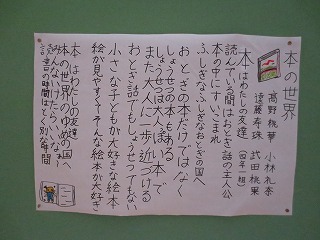 本の世界
高野桃華 小林礼奈
遠藤寿珠 武田桃果
(四年一組)
本はわたしの友達
読んでいる間はおとぎ話の主人公
本の中にすいこまれ
ふしぎなふしぎなおとぎの国へ
おとぎの本だけではなく
しょうせつの本もある
しょうせつは大人に
また大人に一歩近づける
おとぎ話でもしょうせつでもない
小さな子どもが大好きな絵本
絵が見やすくてそんな絵本が大好き
本はわたしの友達
本の世界のゆめの国へ
みんないけたらいいな
読書の時間はとく別な時間